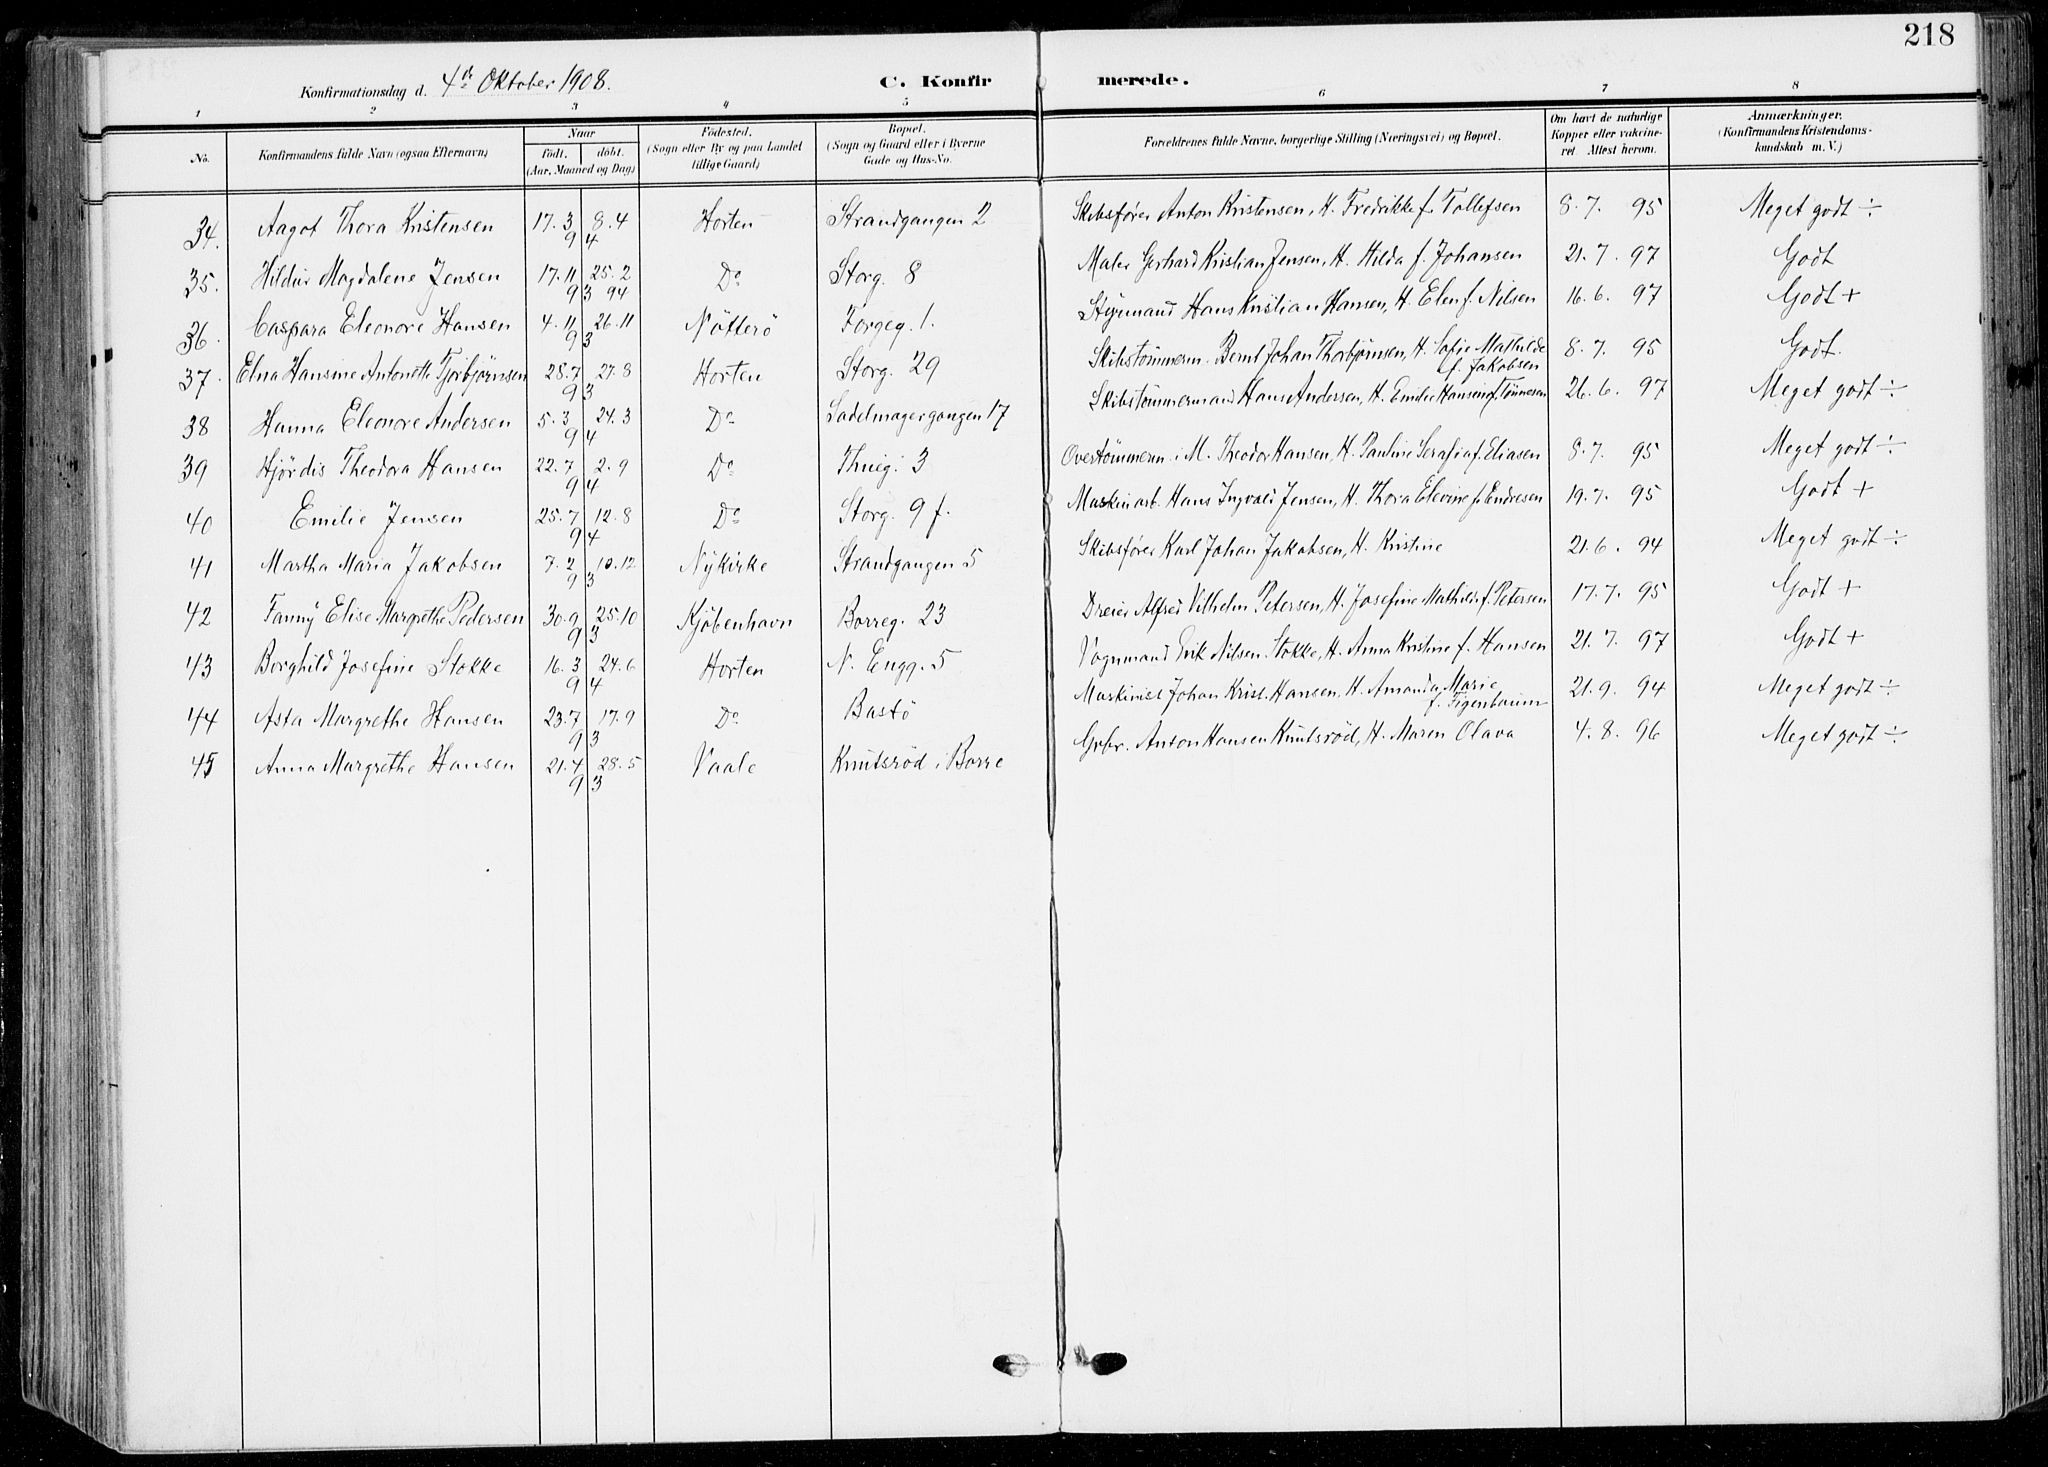 218
Konfirmationsdag d. 4de Oktober 1908.
C. Konfirmerede.
1 2 3 4 5 6 7 8
No.
Konfirmandens fulde Navn (ogsaa Efternavn)
Naar
født. døbt.
(Aar, Maaned og Dag)
Fødested.
(Sogn eller By og paa Landet
tillige Gaard)
Bopæl.
(Sogn og Gaard eller i Byerne
Gade og Hus-No.
Forældrenes fulde Navne, borgerlige Stilling (Næringsvei) og Bopæl.
Om havt de naturlige
Kopper eller vakcine-
ret. Attest herom.
Anmærkninger.
(Konfirmandens Kristendoms-
kundskab m. V.)
34. Aagot Thora Kristensen 17.3 8.4 94 Horten Strandgangen 2 Skibsfører Anton Kristensen, H. Fredrikke f. Tollefsen 8. 7. 95 Meget godt ÷
35. Hildur Magdalene Jensen 17.11 93 25.2 94 Do Storg. 8 Maler Gerhard Kristian Jensen, H. Hilda f. Johansen 21. 7. 97 Godt
36. Caspara Eleonore Hansen 4.11 26.11 93 Nötterö Torgeg. 1. Styrmand Hans Kristian Hansen, H. Elen f. Nilsen 16. 6. 97 Godt +
37. Elna Hansine Antonette Torbjørnsen 28.7 27.8 93 Horten Storg. 29 Skibstömmerm. Bernt Johan Thorbjørnsen, H. Sofie Mathilde
f. Jakobsen 8. 7. 95 Godt.
38 Hanna Eleonore Andersen 5.3 24.3 94 Do Sadelmagergangen 17 Skibstömmermand Hans Andersen, H. Emilie Hansine f. Tønnesen 26. 6. 97 Meget godt ÷
39 Hjørdis Theodora Hansen 22.7 2.9 94 Do Thueg. 3 Overtömmerm. i M. Theodor Hansen, H. Pauline Serafia f. Eliasen 8. 7. 95 Meget godt ÷
40 Emilie Jensen 25.7 12.8 94 Do Storg. 9 f. Maskinarb. Hans Ingvald Jensen, H. Thora Elevine f. Endresen 19. 7. 95 Godt +
41 Martha Maria Jakobsen 7.2 10.12 93 Nykirke Strandgangen 5 Skibsfører Karl Johan Jakobsen, H. Kristine 21. 6. 94 Meget godt ÷
42 Fanny Elise Margrethe Pedersen 30.9 25.10 93 Kjöbenhavn Borreg. 23 Dreier Alfred Vilhelm Petersen, H. Josefine Mathilde f. Petersen 17. 7. 95 Godt +
43 Borghild Josefine Stokke 16.3 24.6 94 Horten N. Engg. 5 Vognmand Erik Nilsen Stokke, H. Anna Kristine f. Hansen 21. 7. 97 Godt +
44 Asta Margrethe Hansen 23.7 17.9 93 Do Bastö Maskinist Johan Krist. Hansen, H. Amanda Marie
f. Figenbaum 21. 9. 94 Meget godt ÷
45 Anna Margrethe Hansen 21.4 28.5 93 Vaale Knutsröd i Borre Grbr. Anton Hansen Knutsröd, H. Maren Olava 4. 8. 96 Meget godt ÷